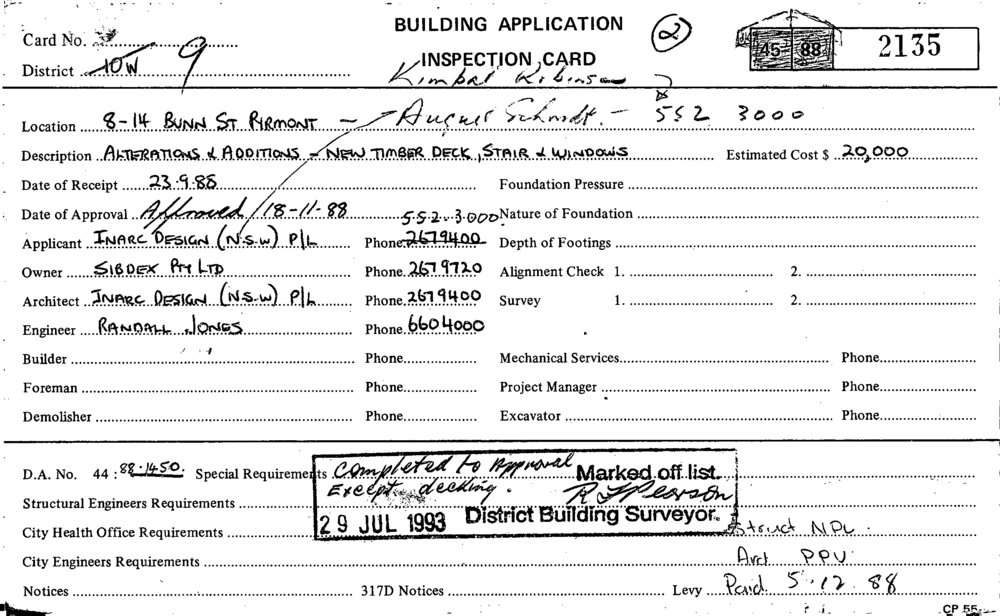 BUILDING APPLICATION
②
45 88 2135
Card No.
INSPECTION CARD
District TOW 9
Kimbal Robinson
Location 8-14 BUNN ST PYRMONT - August Schmidt. - 552 3000
Description ALTERATIONS & ADDITIONS - NEW TIMBER DECK, STAIR & WINDOWS Estimated Cost $ 20,000
Date of Receipt 23.9.88 Foundation Pressure
Date of Approval Approved 18-11-88 552.3000 Nature of Foundation
Applicant INARC DESIGN (N.S.W) P/L Phone 2679400 Depth of Footings
Owner SIBDEX PTY LTD Phone 2679720 Alignment Check 1. 2.
Architect INARC DESIGN (N.S.W) P/L Phone 2679400 Survey 1. 2.
Engineer RANDALL JONES Phone 6604000
Builder Phone Mechanical Services Phone
Foreman Phone Project Manager Phone
Demolisher Phone Excavator Phone
D.A. No. 44 : 88-1450 Special Requirements Completed to Approval Marked off list.
Except decking. R Pearson
Structural Engineers Requirements
29 JUL 1993 District Building Surveyor.
City Health Office Requirements Struct NPL
City Engineers Requirements Arct PPV
Notices 317D Notices Levy Paid 5.12.88
CP 55